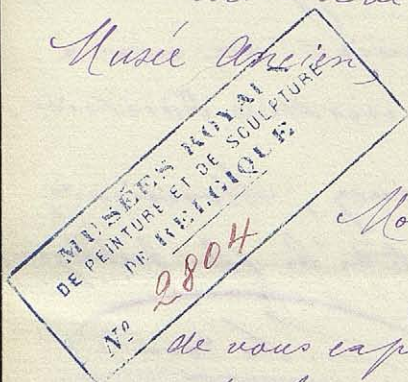 Musée Ancien,
MUSÉES ROYAUX
DE PEINTURE ET DE SCULPTURE
DE BELGIQUE
Nº 2804
de vous